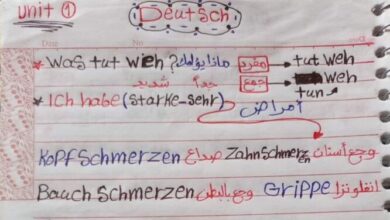 unit ① Deutsch
Date No
* Was tut weh? ماذا يؤلمك مفرد → tut weh
جمع → weh tun
جداً شديد
* Ich habe (starke-sehr) أمراض
Kopfschmerzen صداع Zahnschmerzen وجع أسنان
Bauchschmerzen وجع بالبطن Grippe انفلونزا